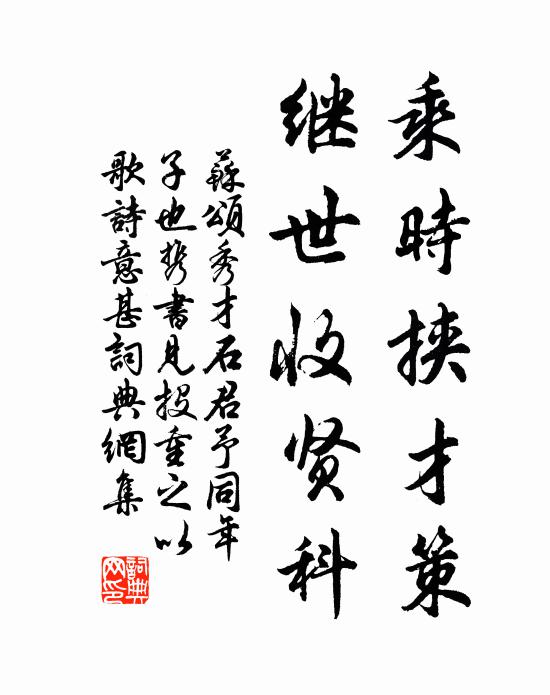 乘時挾才策
继世收贤科
蘇頌秀才石君予同年
子也携書見投重之以
歌詩意甚詞典網集
詞典网印